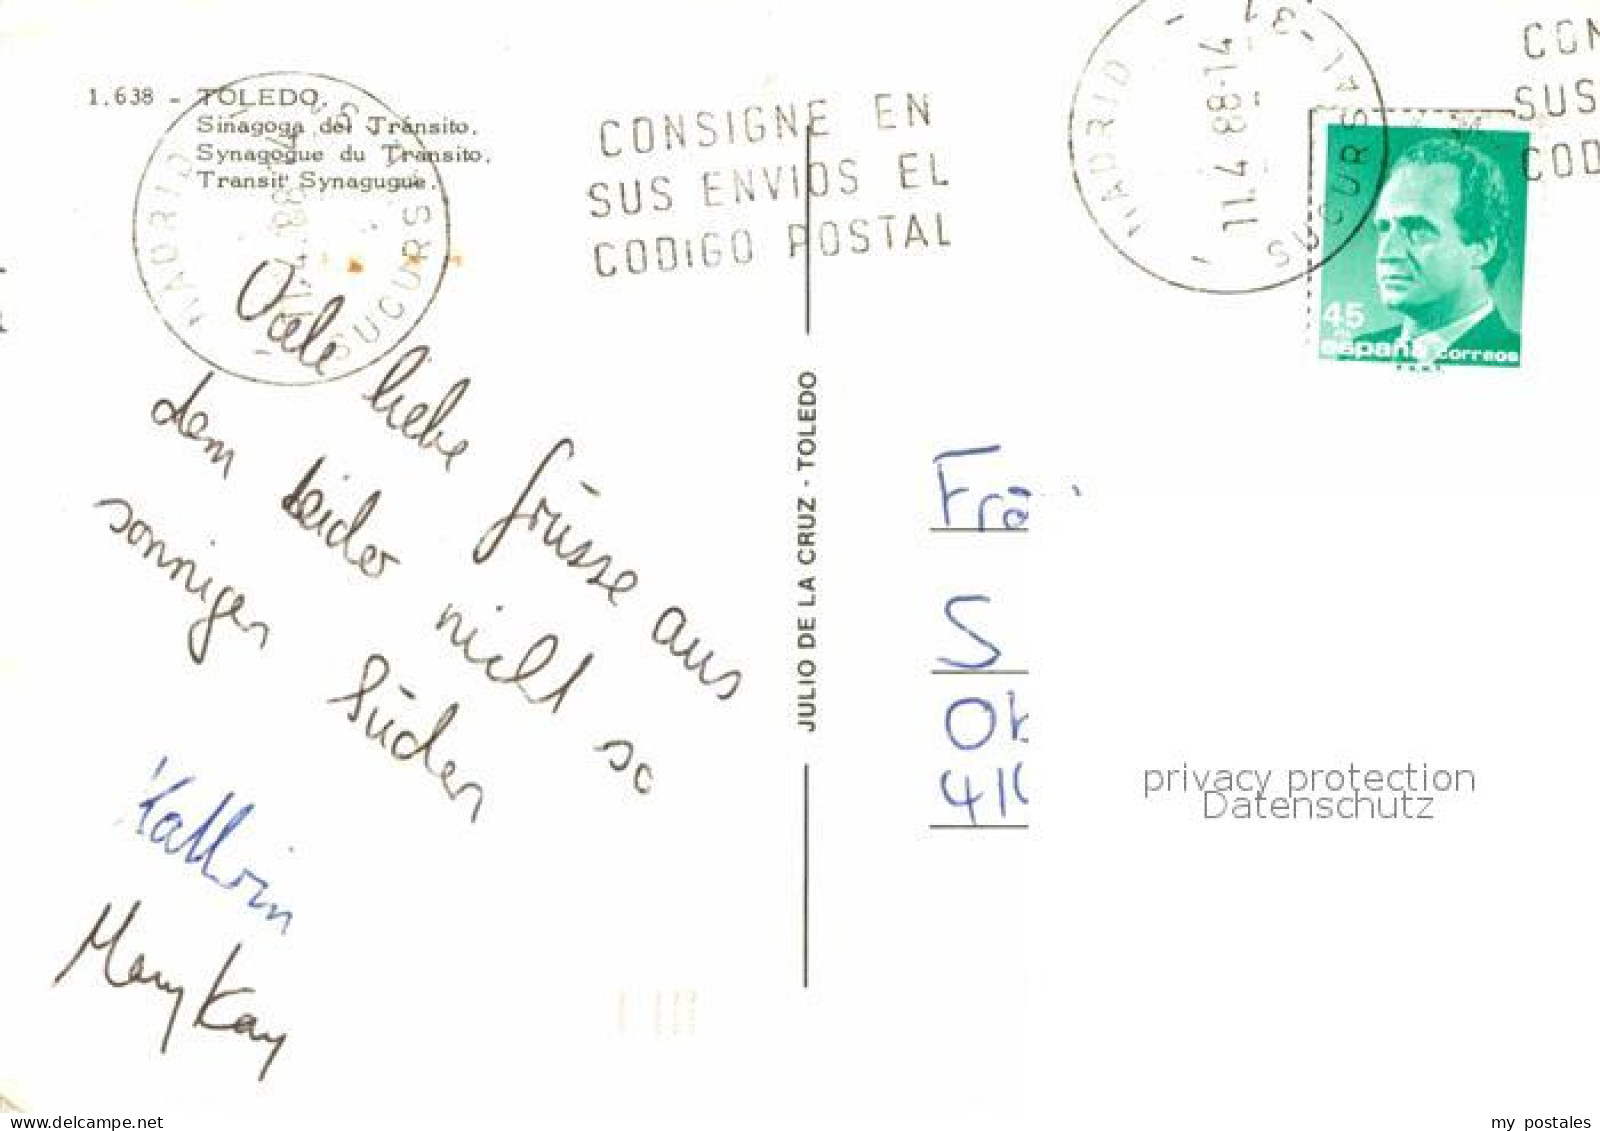 1.638 - TOLEDO.
Sinagoga del Tránsito.
Synagogue du Transito.
Transit Synagugue.
MADRID SUCURS
CONSIGNE EN
SUS ENVIOS EL
CODIGO POSTAL
MADRID - SUCURS
CON
SUS
COD
45
españa correos
F.N.M.T.
Viele liebe Grüsse aus
dem leider nicht so
sonnigen Süden
Kathrin
Mary Kay
JULIO DE LA CRUZ - TOLEDO
Frä
S
Ob
410
privacy protection
Datenschutz
delcampe.net
my_postales